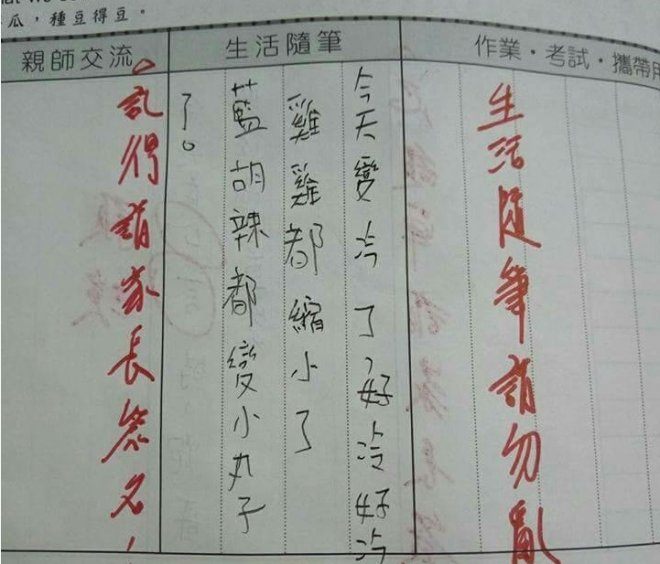 at we s
瓜，種豆得豆。
作業・考試・攜帶用
生活隨筆
親師交流
生活隨筆請勿亂
今天變冷了，好冷好冷
雞雞都縮小了
藍胡辣都變小丸子
了。
記得請家長簽名！